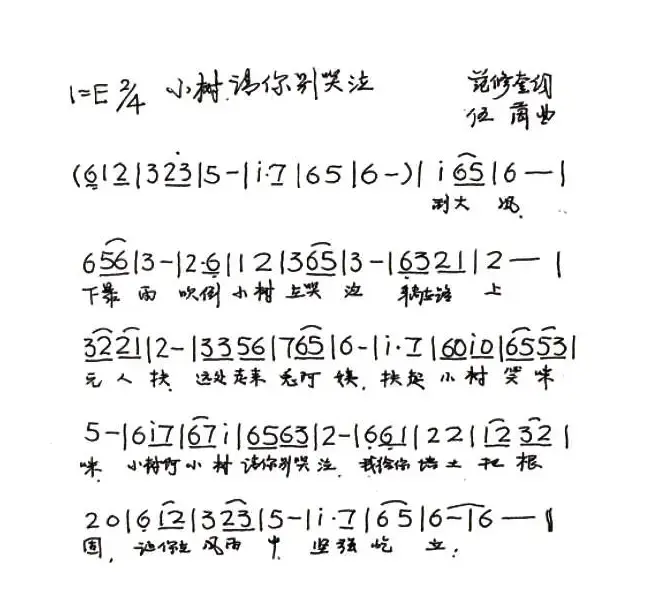 1=E 2/4 小树请你别哭泣 范修奎词
伍 曲
(6 1 2 | 3 2 3 | 5 - | i · 7 | 6 5 | 6 - ) | i 6 5 | 6 — |
刮大 风
6 5 6 | 3 - | 2 · 6 | 1 2 | 3 6 5 | 3 - | 6 3 2 1 | 2 — |
下暴 雨 吹倒 小树 在哭 泣 上
3 2 2 1 | 2 - | 3 3 5 6 | 7 6 5 | 6 - | i · 7 | 6 0 i 0 | 6 5 5 3 |
无 人 扶 远处走来 阿 姨 扶起 小 树 笑 咪
5 - | 6 i 7 | 6 7 i | 6 5 6 3 | 2 - | 6 6 1 | 2 2 | 1 2 3 2 |
咪 小树阿小 树 请你别哭 泣 我给你 培土 把 根
2 0 | 6 1 2 | 3 2 3 | 5 - | i · 7 | 6 5 | 6 - | 6 — ‖
固 让你在 风雨 中 坚强 屹 立